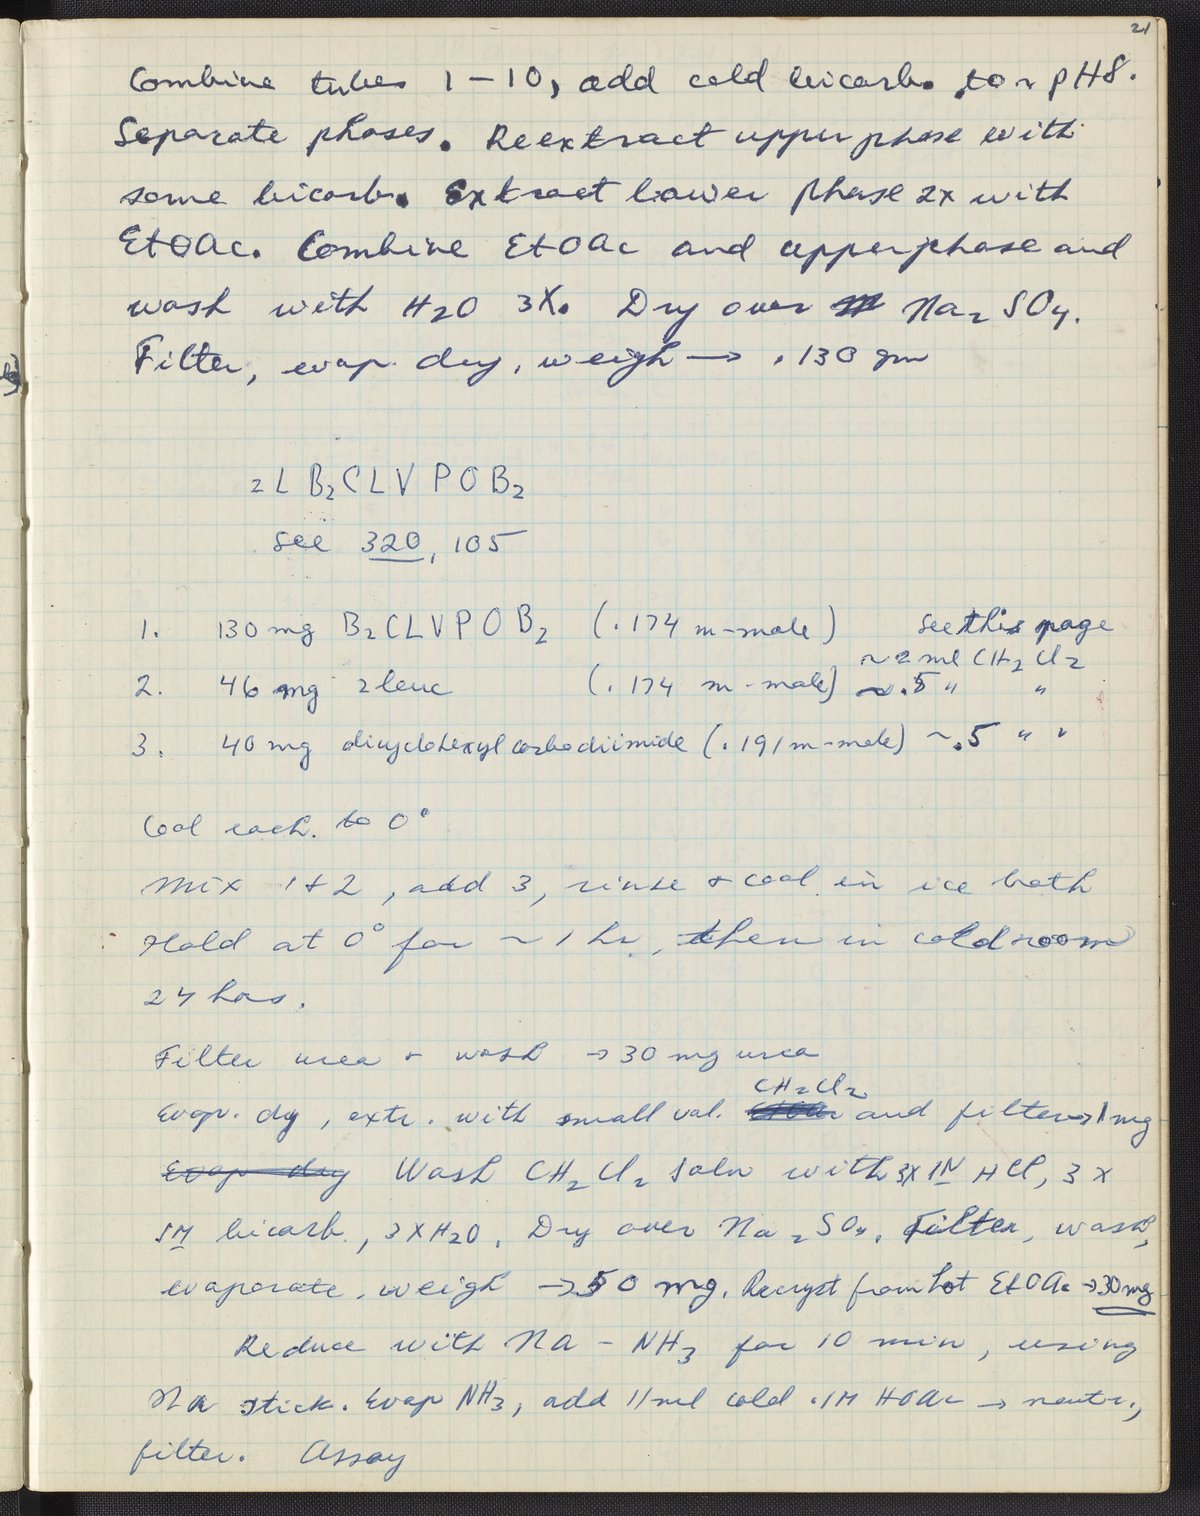 21
Combine tubes 1-10, add cold bicarb. to ~ pH8.
Separate phases. Reextract upper phase with
some bicarb. Extract lower phase 2x with
EtOAc. Combine EtOAc and upper phase and
wash with H2O 3X. Dry over Na2SO4.
Filter, evap. dry, weigh → .130 gm
ZLB2CLVPOB2
see 320, 105
1. 130 mg B2CLVPOB2 (.174 m-mole) see this page
~2 ml CH2Cl2
2. 46 mg zleuc (.174 m-mole) ~.5 " "
3. 40 mg dicyclohexylcarbodiimide (.191 m-mole) ~.5 " "
Cool each to 0°
Mix 1+2, add 3, rinse + cool in ice bath
Hold at 0° for ~1 hr., then in cold room
24 hrs.
Filter urea + wash → 30 mg urea
CH2Cl2
Evap. dry, extr. with small vol. and filter → 1 mg
Evap dry Wash CH2Cl2 soln with 3x 1N HCl, 3x
1M bicarb., 3XH2O, Dry over Na2SO4, Filter, wash,
evaporate, weigh → 50 mg. Recryst from hot EtOAc → 30 mg
Reduce with Na-NH3 for 10 min, using
Na stick. Evap NH3, add 11 ml cold .1M HOAc → neutr.,
filter. Assay